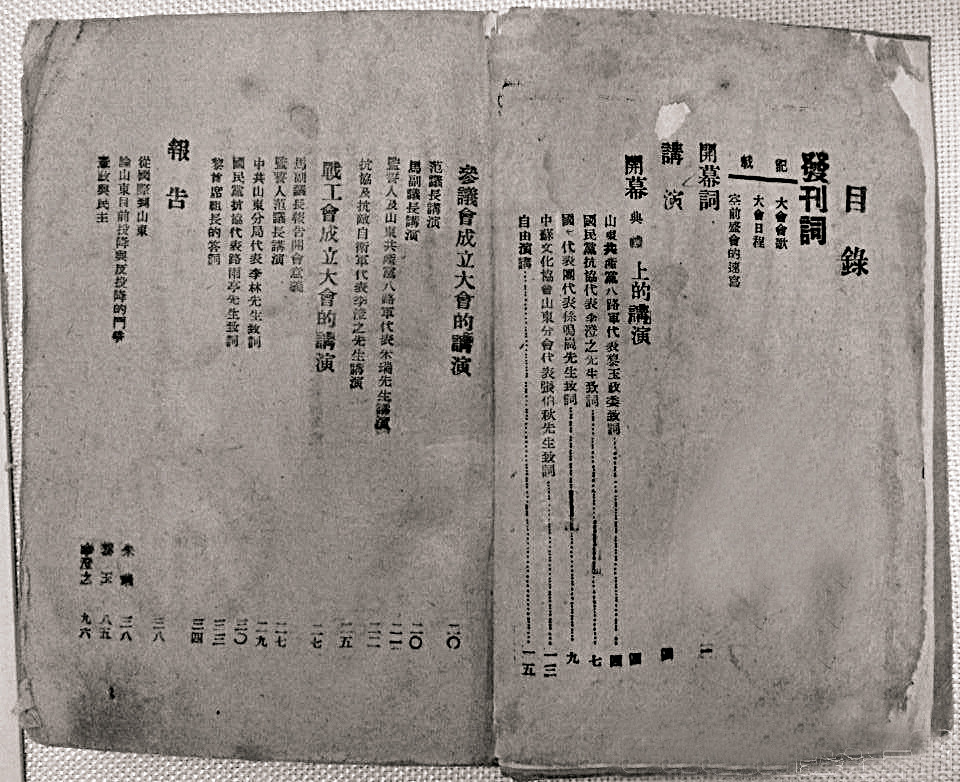 目錄
發刊詞
記載
大會會歌
大會日程
空前盛會的速寫
開幕詞 一
講演 四
開幕典禮上的講演 四
山東共產黨八路軍代表黎玉政委致詞 四
國民黨抗協代表李澄之先生致詞 七
國代表團代表孫鳴崗先生致詞 九
中蘇文化協會山東分會代表張伯秋先生致詞 一三
自由演講 一五
參議會成立大會的講演 二〇
范議長講演 二〇
馬副議長講演 二一
監誓人及山東共產黨八路軍代表朱瑞先生講演 二二
抗協及抗敵自衛軍代表李澄之先生講演 二五
戰工會成立大會的講演 二七
馬副議長報告開會意義 二七
監誓人范議長講演 二九
中共山東分局代表李林先生致詞 三〇
國民黨抗協代表路雨亭先生致詞 三三
黎首席組長的答詞 三四
報告 三八
從國際到山東 朱瑞 三八
論山東目前投降與反投降的鬥爭 黎玉 八五
憲政與民主 李澄之 九六